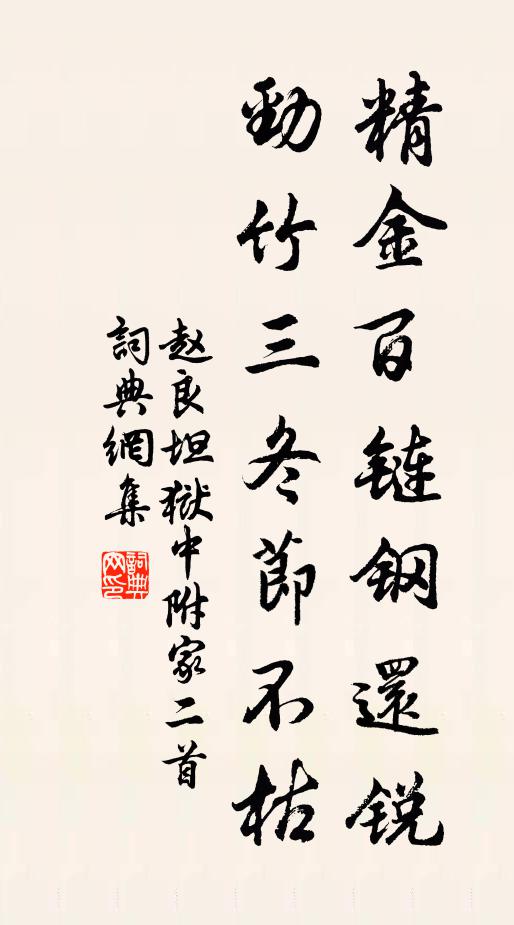 精金百鏈鋼還鋭
勁竹三冬節不枯
赵良坦獄中附家二首
詞典網集
詞典网印